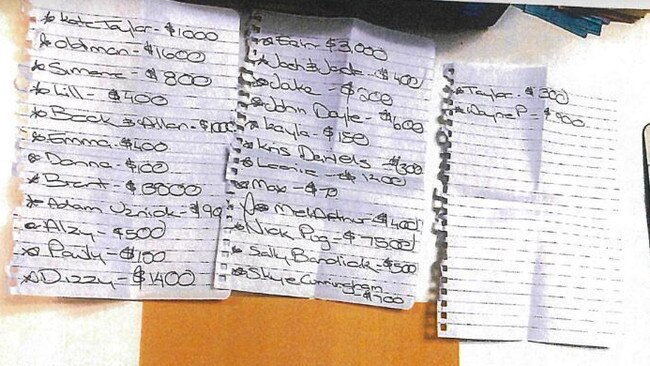 Kate Taylor - $1000
Oldman - $1600
Simone - $800
Lill - $400
Beck & Allan - $1000
Emma - $400
Donna - $100
Brent - $3000
Adam - $90
Alzy - $500
Pauly - $100
Dizzy - $1400
$3,000
Josh & Jade - $400
Jake - $200
John Doyle - $600
Kayla - $150
Kris Daniels - $300
Leonie - $1200
Max - $70
Mel Arthur - $400
Nick Pug - $7500
Sally Bandick - $500
Skye Cunningham
$1700
Taylor - $300
Wayne P - $900